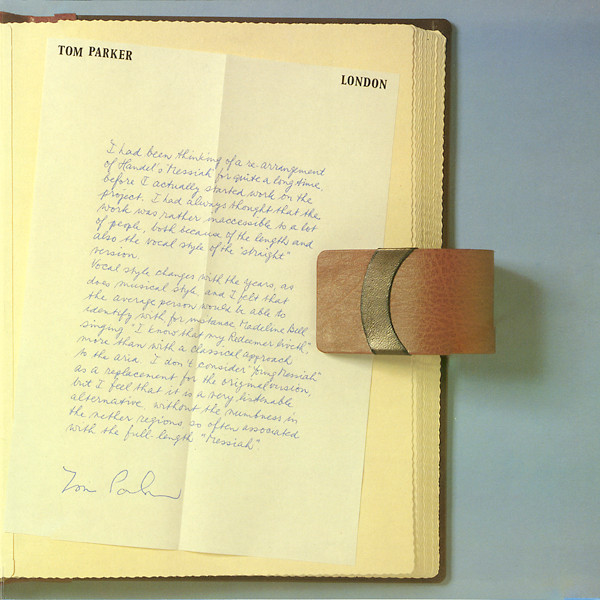 TOM PARKER
LONDON
I had been thinking of a re-arrangement
of Handel's Messiah for quite a long time,
before I actually started work on the
project. I had always thought that the
work was rather inaccessible to a lot
of people, both because of the length and
also the vocal style of the "straight"
version.
Vocal style changes with the years, as
does musical style, and I felt that
the average person would be able to
identify with for instance Madeline Bell
singing "I know that my Redeemer liveth",
more than with a classical approach
to the aria. I don't consider "Young Messiah"
as a replacement for the original version,
but I feel that it is a very listenable
alternative, without the numbness in
the nether regions so often associated
with the full-length "Messiah".
Tom Parker